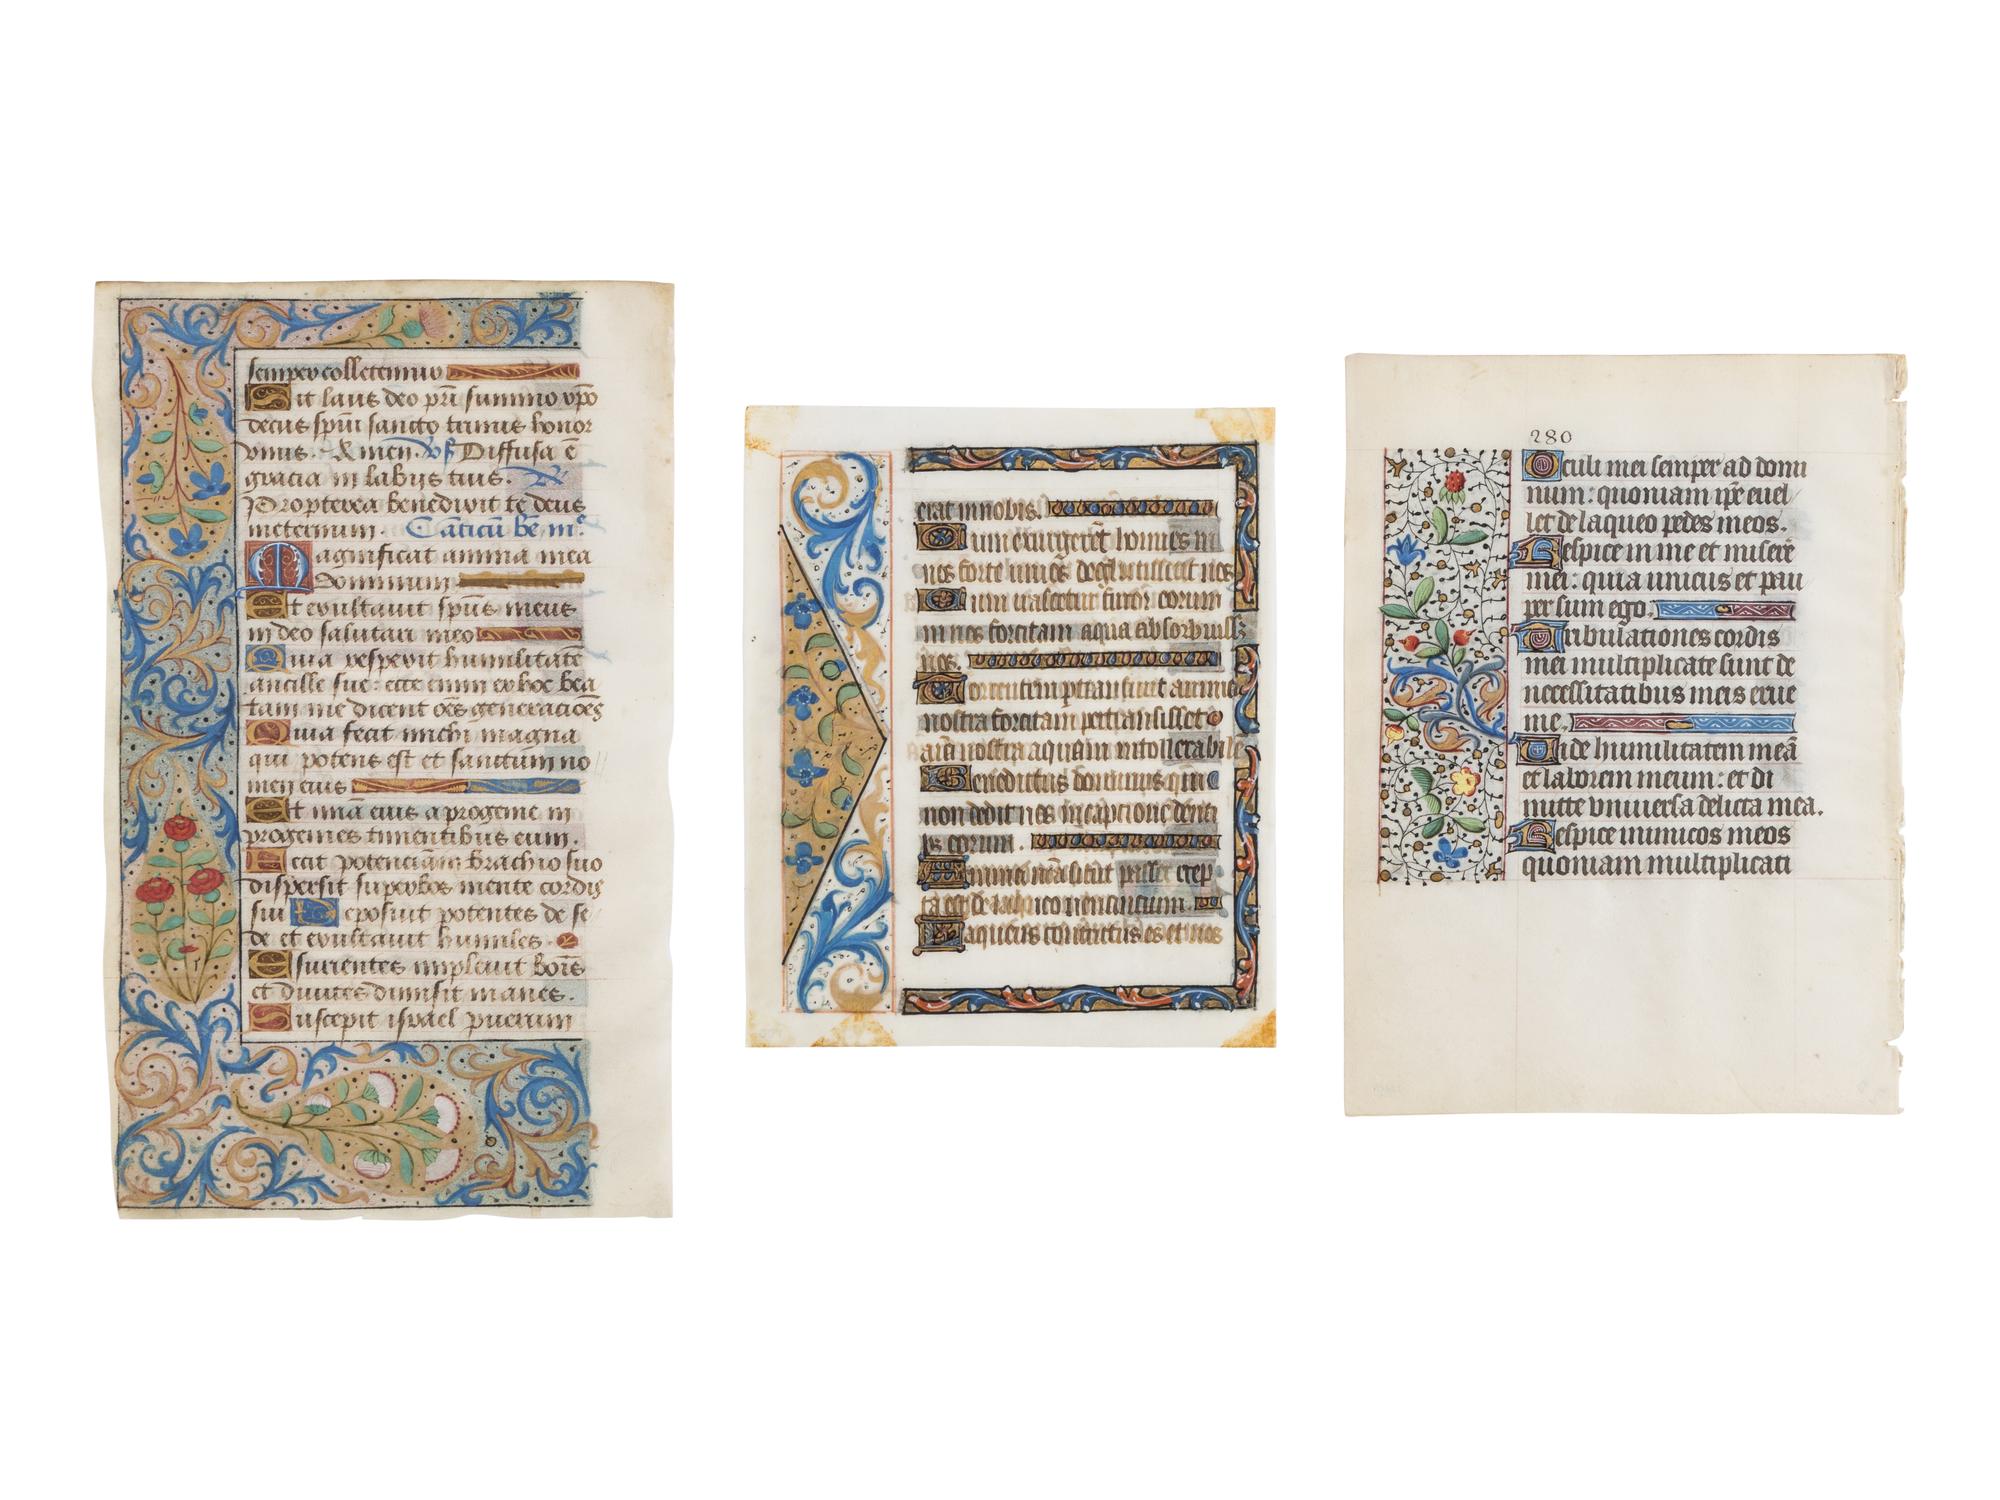 semper colletemur
Sit laus deo pri summo xpo
decus spui sancto trinus honor
vnus. Amen. Vs Diffusa e
gracia in labijs tuis. R
Propterea benedixit te deus
ineternum. Canticu be me
Magnificat anima mea
dominum
Et exultauit spus meus
in deo salutari meo
Quia respexit humilitate
ancille sue: ecce enim ex hoc bea
tam me dicent oes generacioes
Quia fecit michi magna
qui potens est et sanctum no
men eius
Et mia eius a progenie in
progenies timentibus eum.
Fecit potenciam brachio suo
dispersit superbos mente cordis
sui Deposuit potentes de se
de et exultauit humiles.
Esurientes impleuit bonis
et diuites dimisit inanes.
Suscepit israel puerum
erat in nobis.
Cum exurgeret homines in
nos forte uiuos deglutissent nos
Cum irascetur furor eorum
in nos forcitam aqua absorbuiss
nos.
Torrentem ptransiuit anima
nostra forcitam pertransisset
aia nostra aquam intollerabile
Benedictus dominus qui
non dedit nos in captione denti
bs eorum.
Anima nea sicut passer erep
ta est de laqueo uenancium.
Laqueus contritus es et nos
280
Oculi mei semper ad domi
num: quoniam ipe euel
let de laqueo pedes meos.
Respice in me et misere
mei: quia unicus et pau
per sum ego.
Tribulationes cordis
mei multiplicate sunt de
necessitatibus meis erue
me.
Vide humilitatem mea
et laborem meum: et di
mitte vniuersa delicta mea.
Respice inimicos meos
quoniam multiplicati